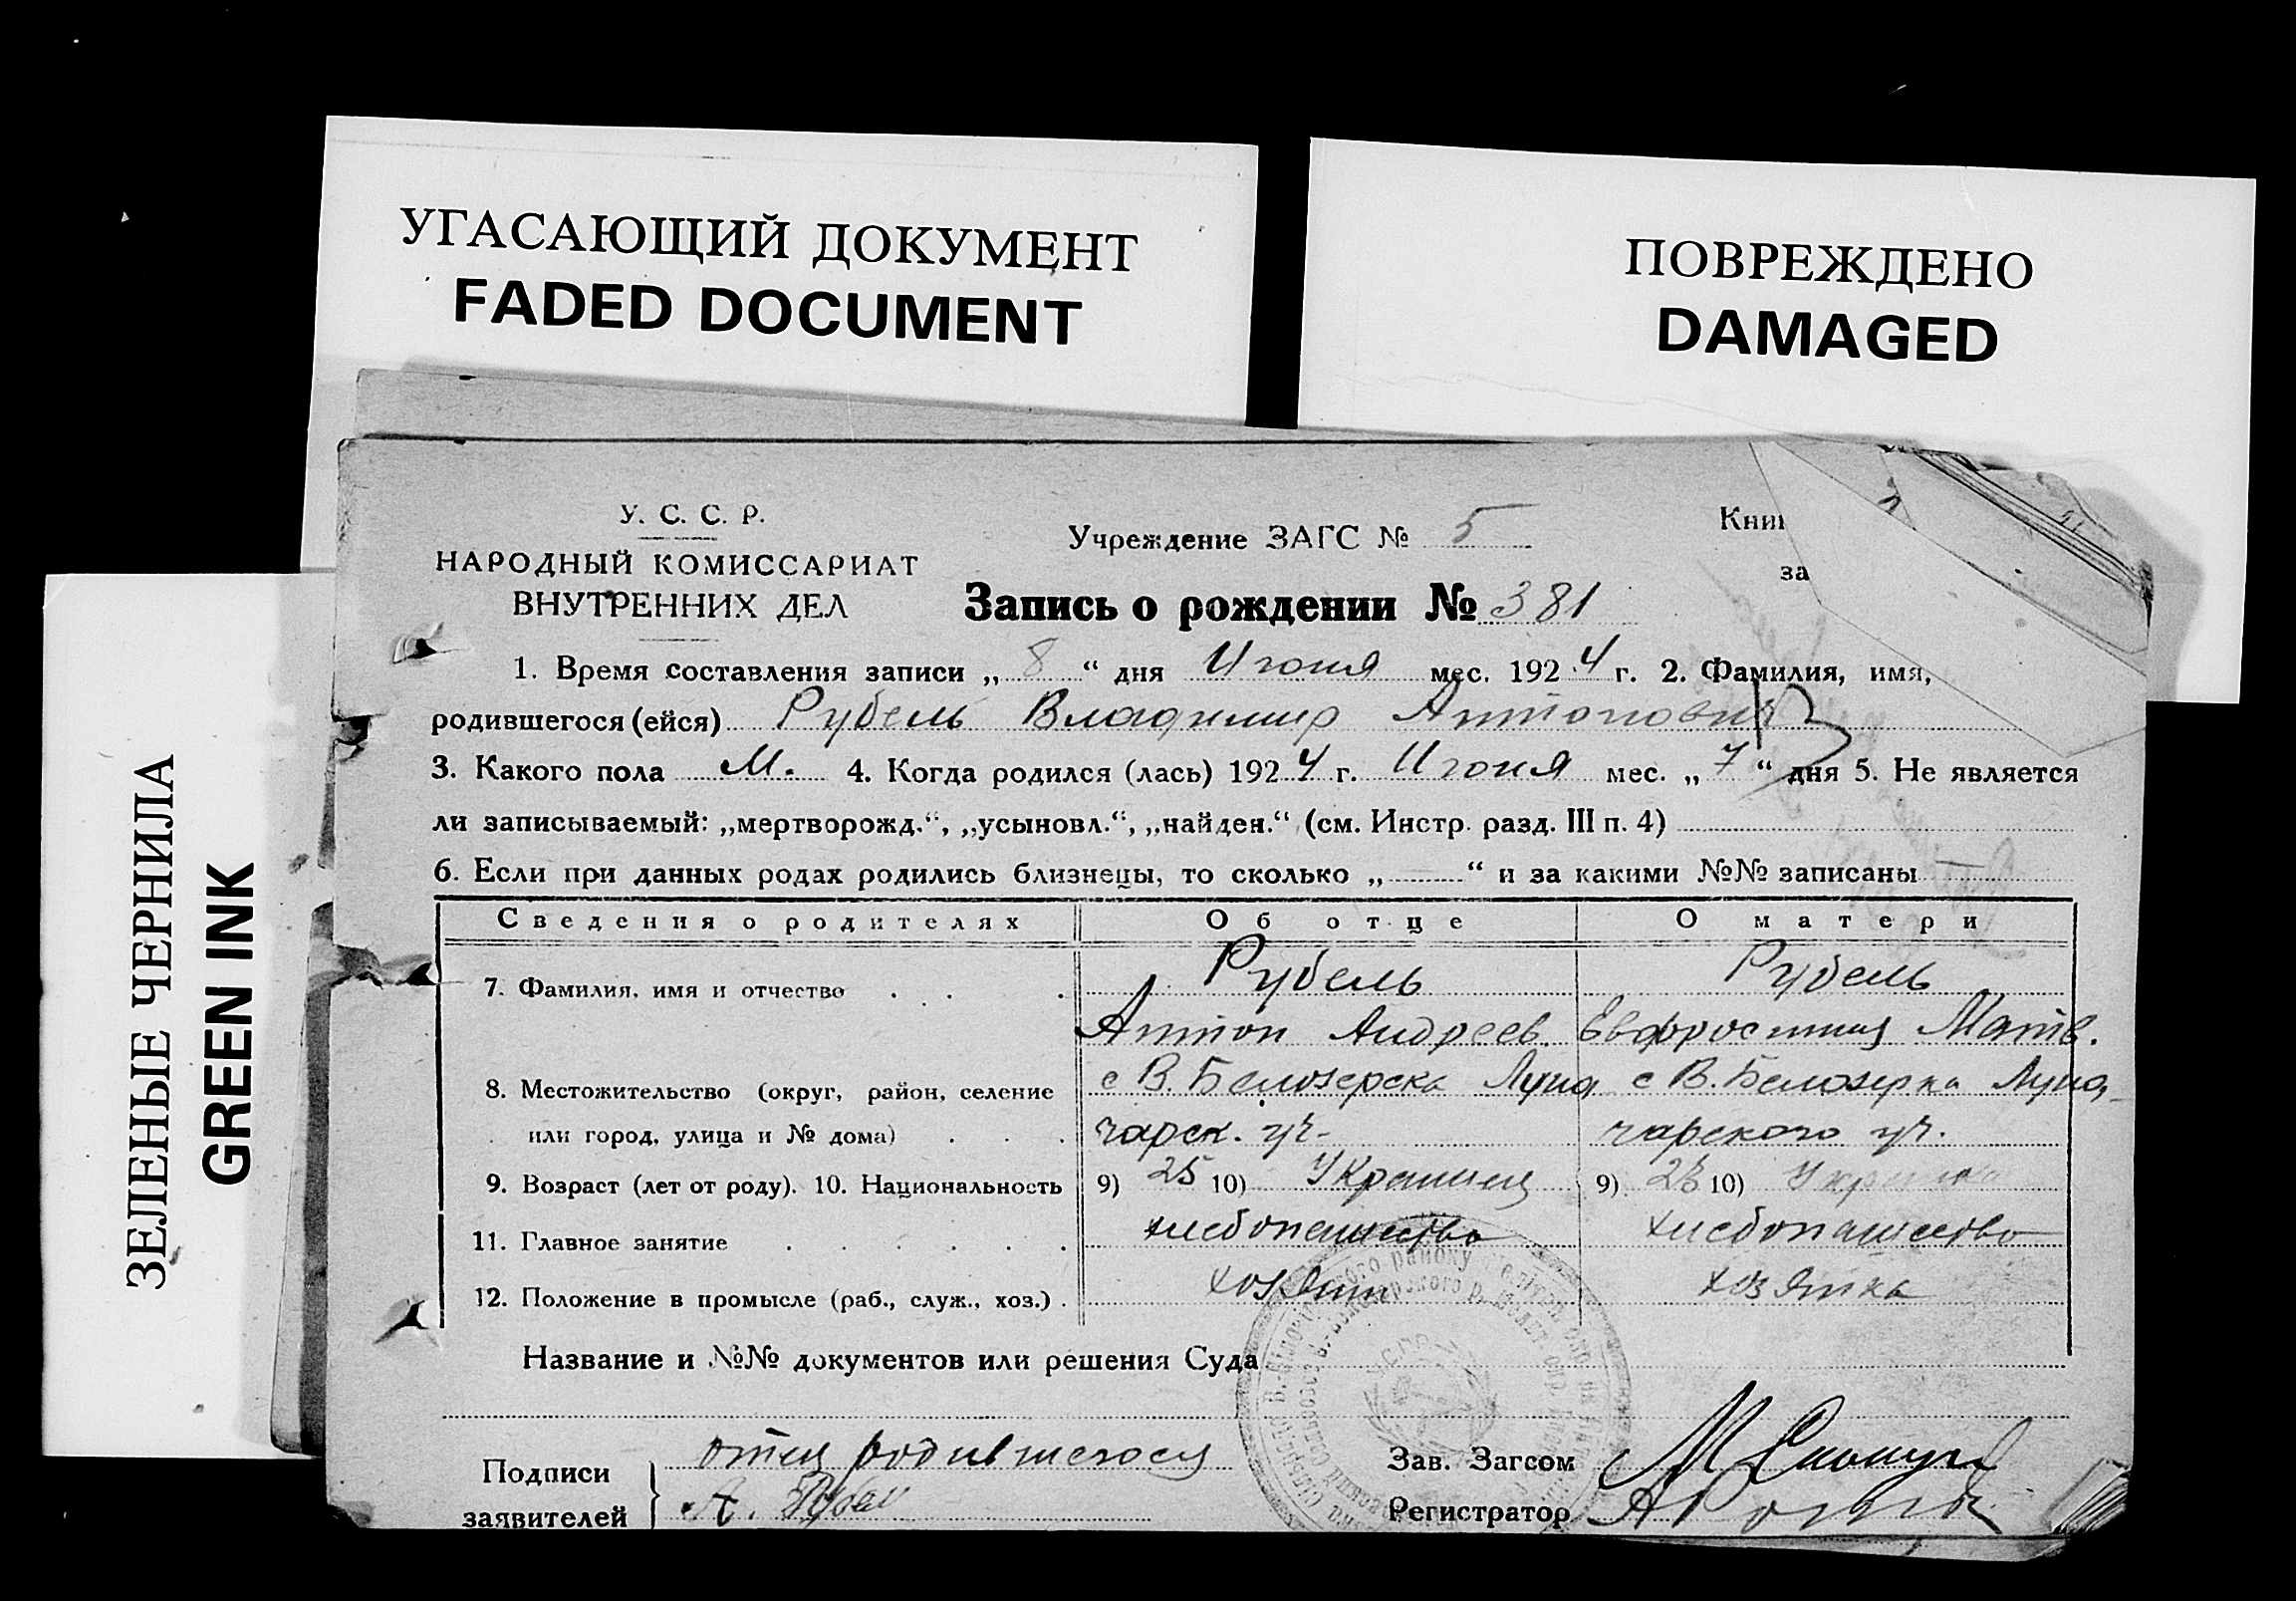 УГАСАЮЩИЙ ДОКУМЕНТ
FADED DOCUMENT
ПОВРЕЖДЕНО
DAMAGED
ЗЕЛЕНЫЕ ЧЕРНИЛА
GREEN INK
У. С. С. Р.
НАРОДНЫЙ КОМИССАРИАТ
ВНУТРЕННИХ ДЕЛ
Учреждение ЗАГС № 5
Книг
за
Запись о рождении № 381
1. Время составления записи „ 8 “ дня Июня мес. 192 4 г. 2. Фамилия, имя,
родившегося (ейся) Рубель Владимир Антонович
3. Какого пола М. 4. Когда родился (лась) 192 4 г. Июня мес. „ 7 “ дня 5. Не является
ли записываемый: „мертворожд.“, „усыновл.“, „найден.“ (см. Инстр. разд. III п. 4)
6. Если при данных родах родились близнецы, то сколько „ — “ и за какими №№ записаны —
Сведения о родителях Об отце О матери
7. Фамилия, имя и отчество Рубель Рубель
Антон Андреев. Евфросиния Матв.
8. Местожительство (округ, район, селение с В. Белозерска Луна с В. Белозерка Луна-
или город, улица и № дома) чарск. уч- чарского уч.
9. Возраст (лет от роду). 10. Национальность 9) 25 10) Украинец 9) 10)
11. Главное занятие хлебопашество хлебопашество
12. Положение в промысле (раб., служ., хоз.) хозяин хозяйка
Название и №№ документов или решения Суда
Подписи заявителей отец родившегося
А. Рубел
Зав. Загсом
Регистратор